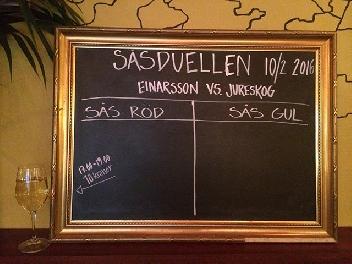 SÅSDUELLEN 10/2 2016
EINARSSON VS. JURESKOG
SÅS RÖD
SÅS GUL
17.00-19.00